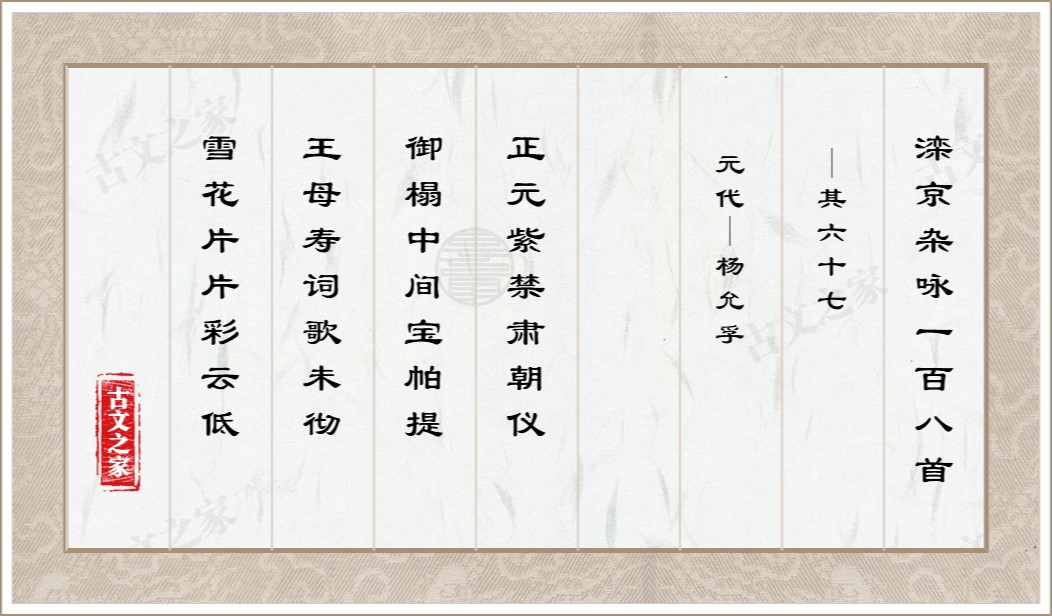 滦京杂咏一百八首
—其六十七
元代—杨允孚
正元紫禁肃朝仪
御榻中间宝帕提
王母寿词歌未彻
雪花片片彩云低
古文之家
古文之家
古文之家
古文之家